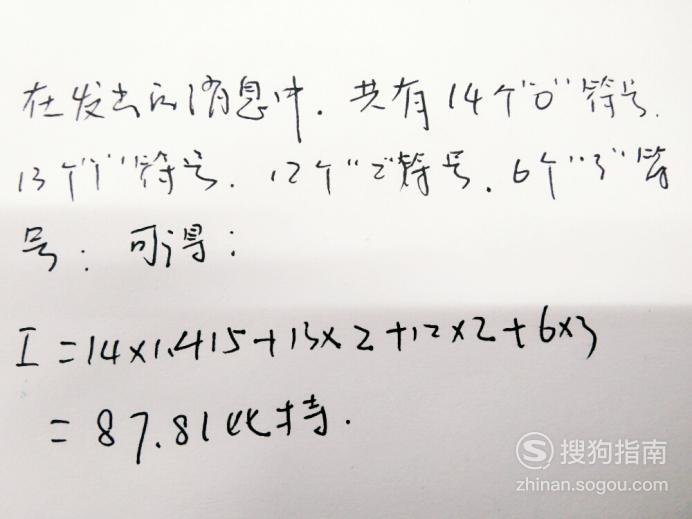 在发出的消息中. 共有14个"0"符号.
13个"1"符号. 12个"2"符号. 6个"3"符
号: 可得:
I=14×1.415+13×2+12×2+6×3
=87.81比特.
搜狗指南
zhinan.sogou.com